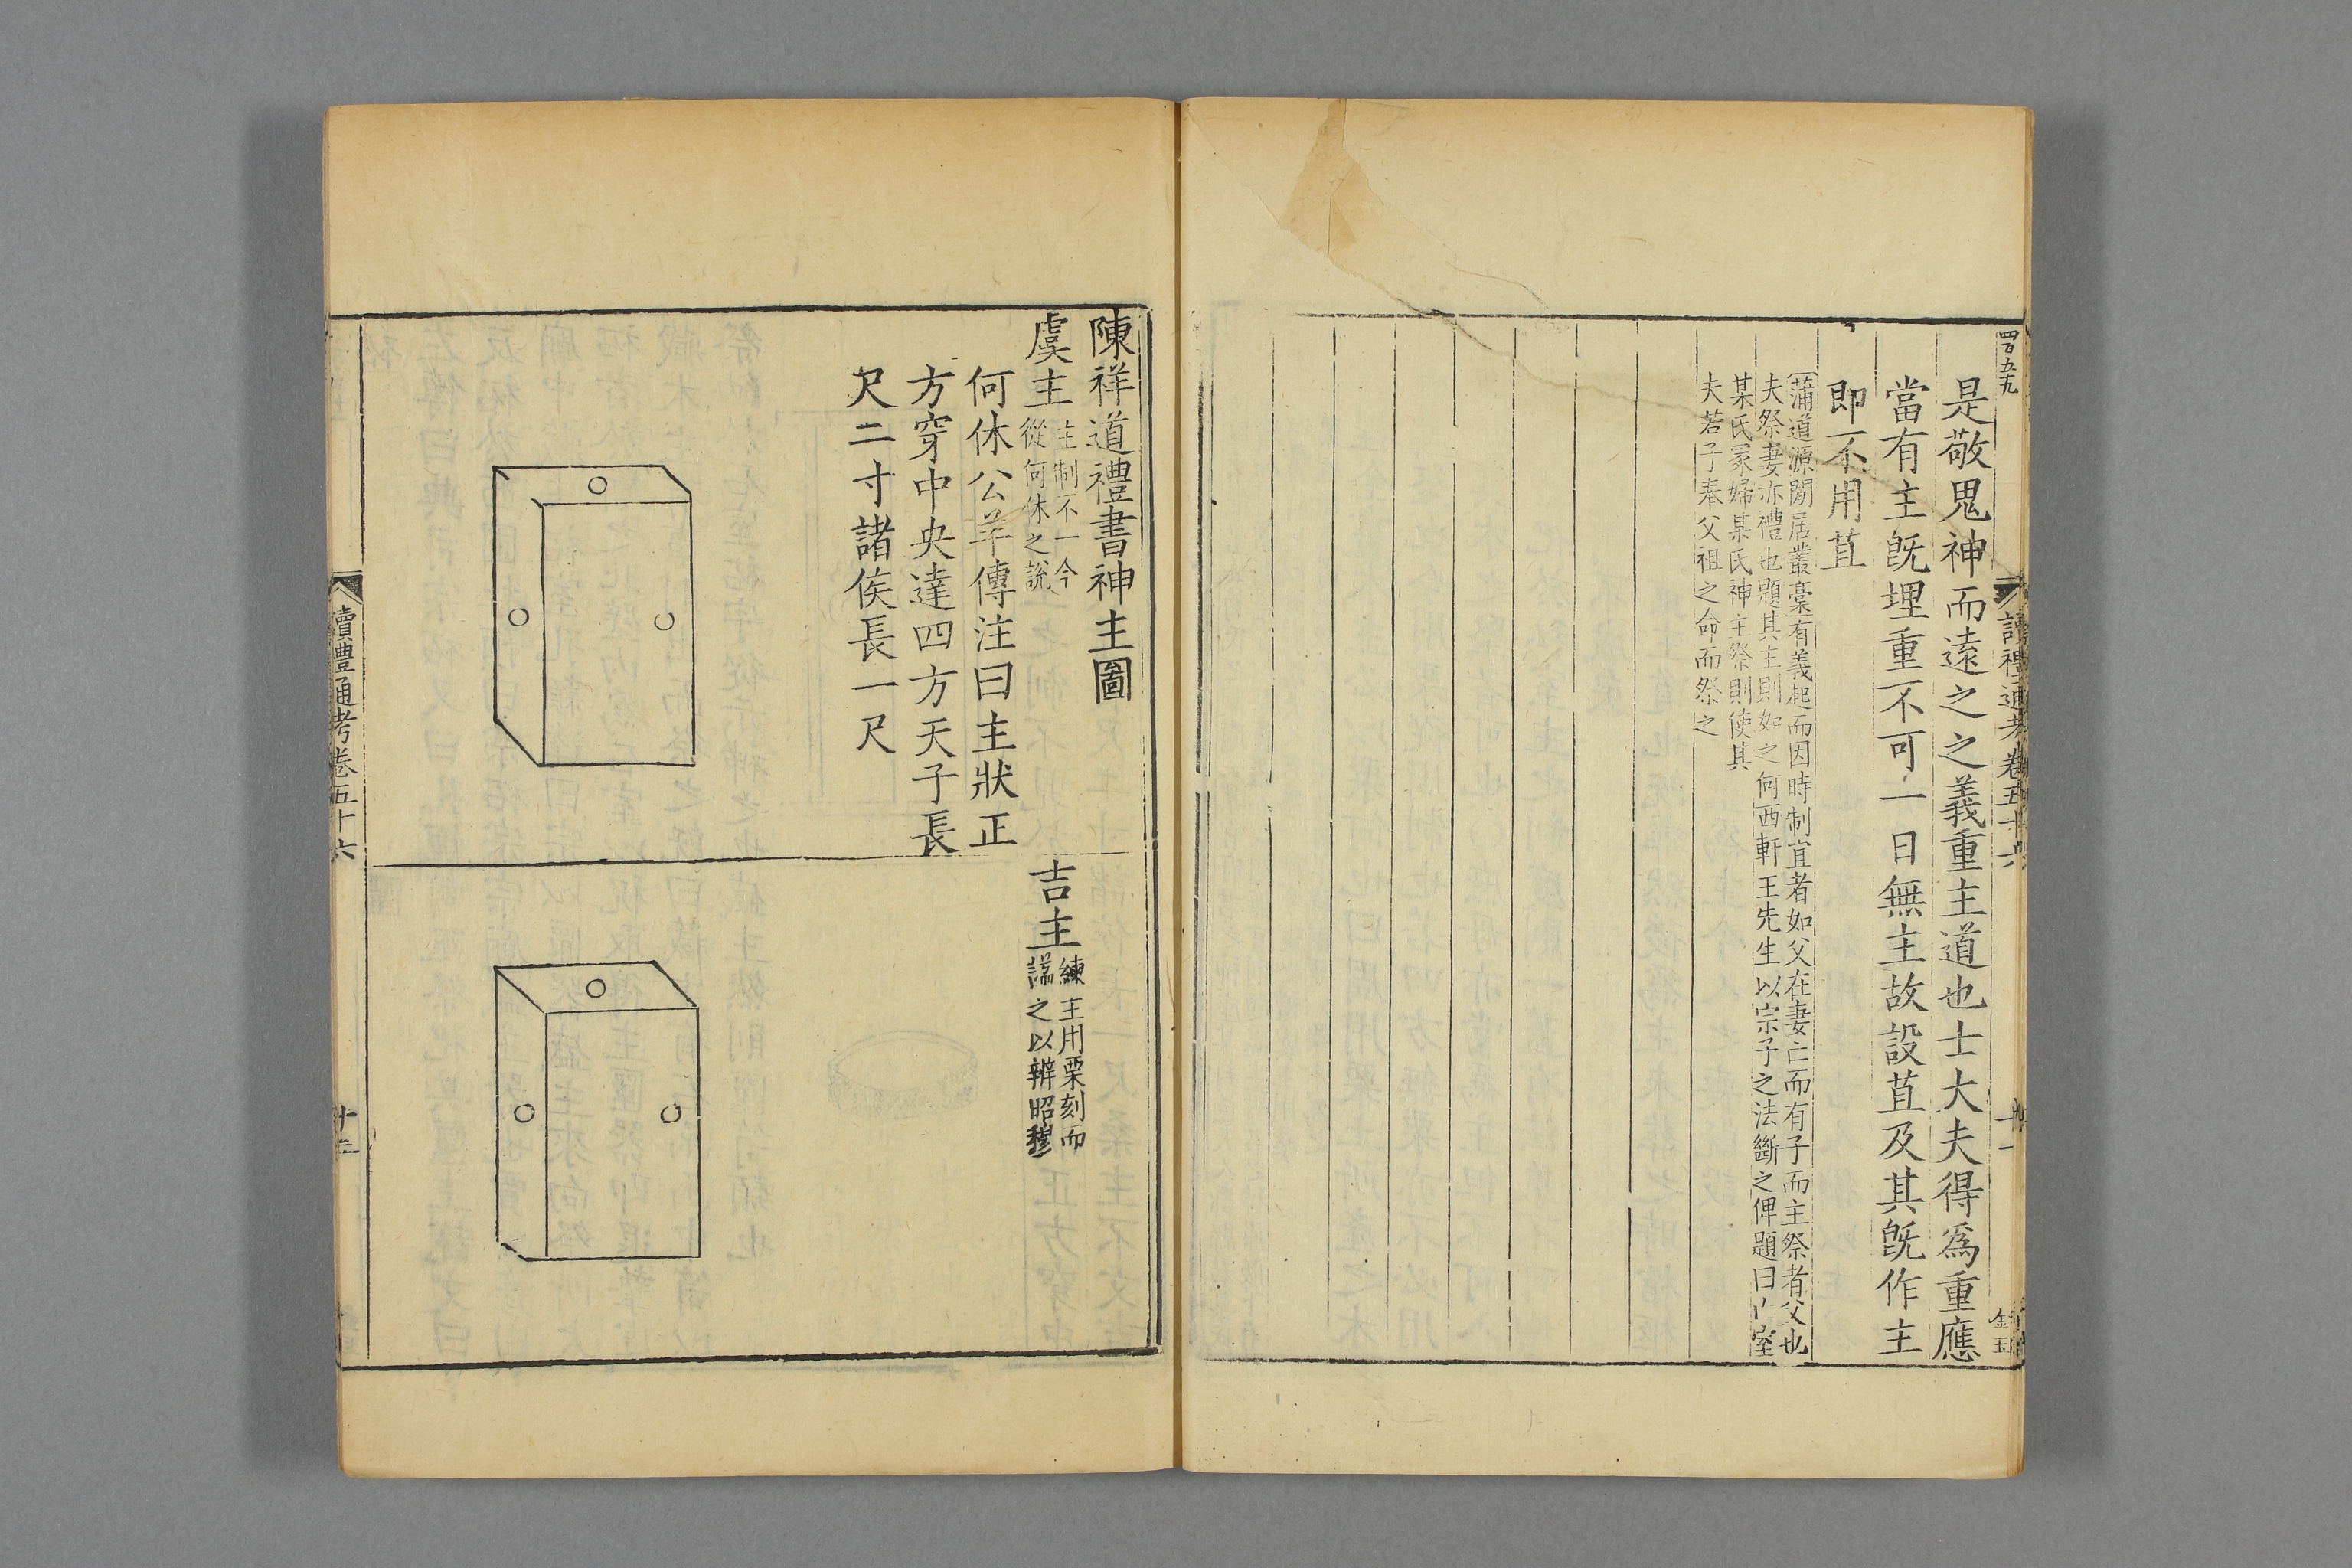 四百五十九
讀禮通考卷五十六
十一
金玉
是敬鬼神而遠之之義重主道也士大夫得爲重應
當有主旣埋重不可一日無主故設苴及其旣作主
即不用苴
蒲道源閒居叢稾有義起而因時制宜者如父在妻亡而有子而主祭者父也
夫祭妻亦禮也題其主則如之何西軒王先生以宗子之法斷之俾題曰亡室
某氏冢婦某氏神主祭則使其
夫若子奉父祖之命而祭之
陳祥道禮書神主圖
虞主
主制不一今
從何休之說
何休公羊傳注曰主狀正
方穿中央達四方天子長
尺二寸諸侯長一尺
吉主
練主用栗刻而
謚之以辨昭穆
讀禮通考卷五十六
十二